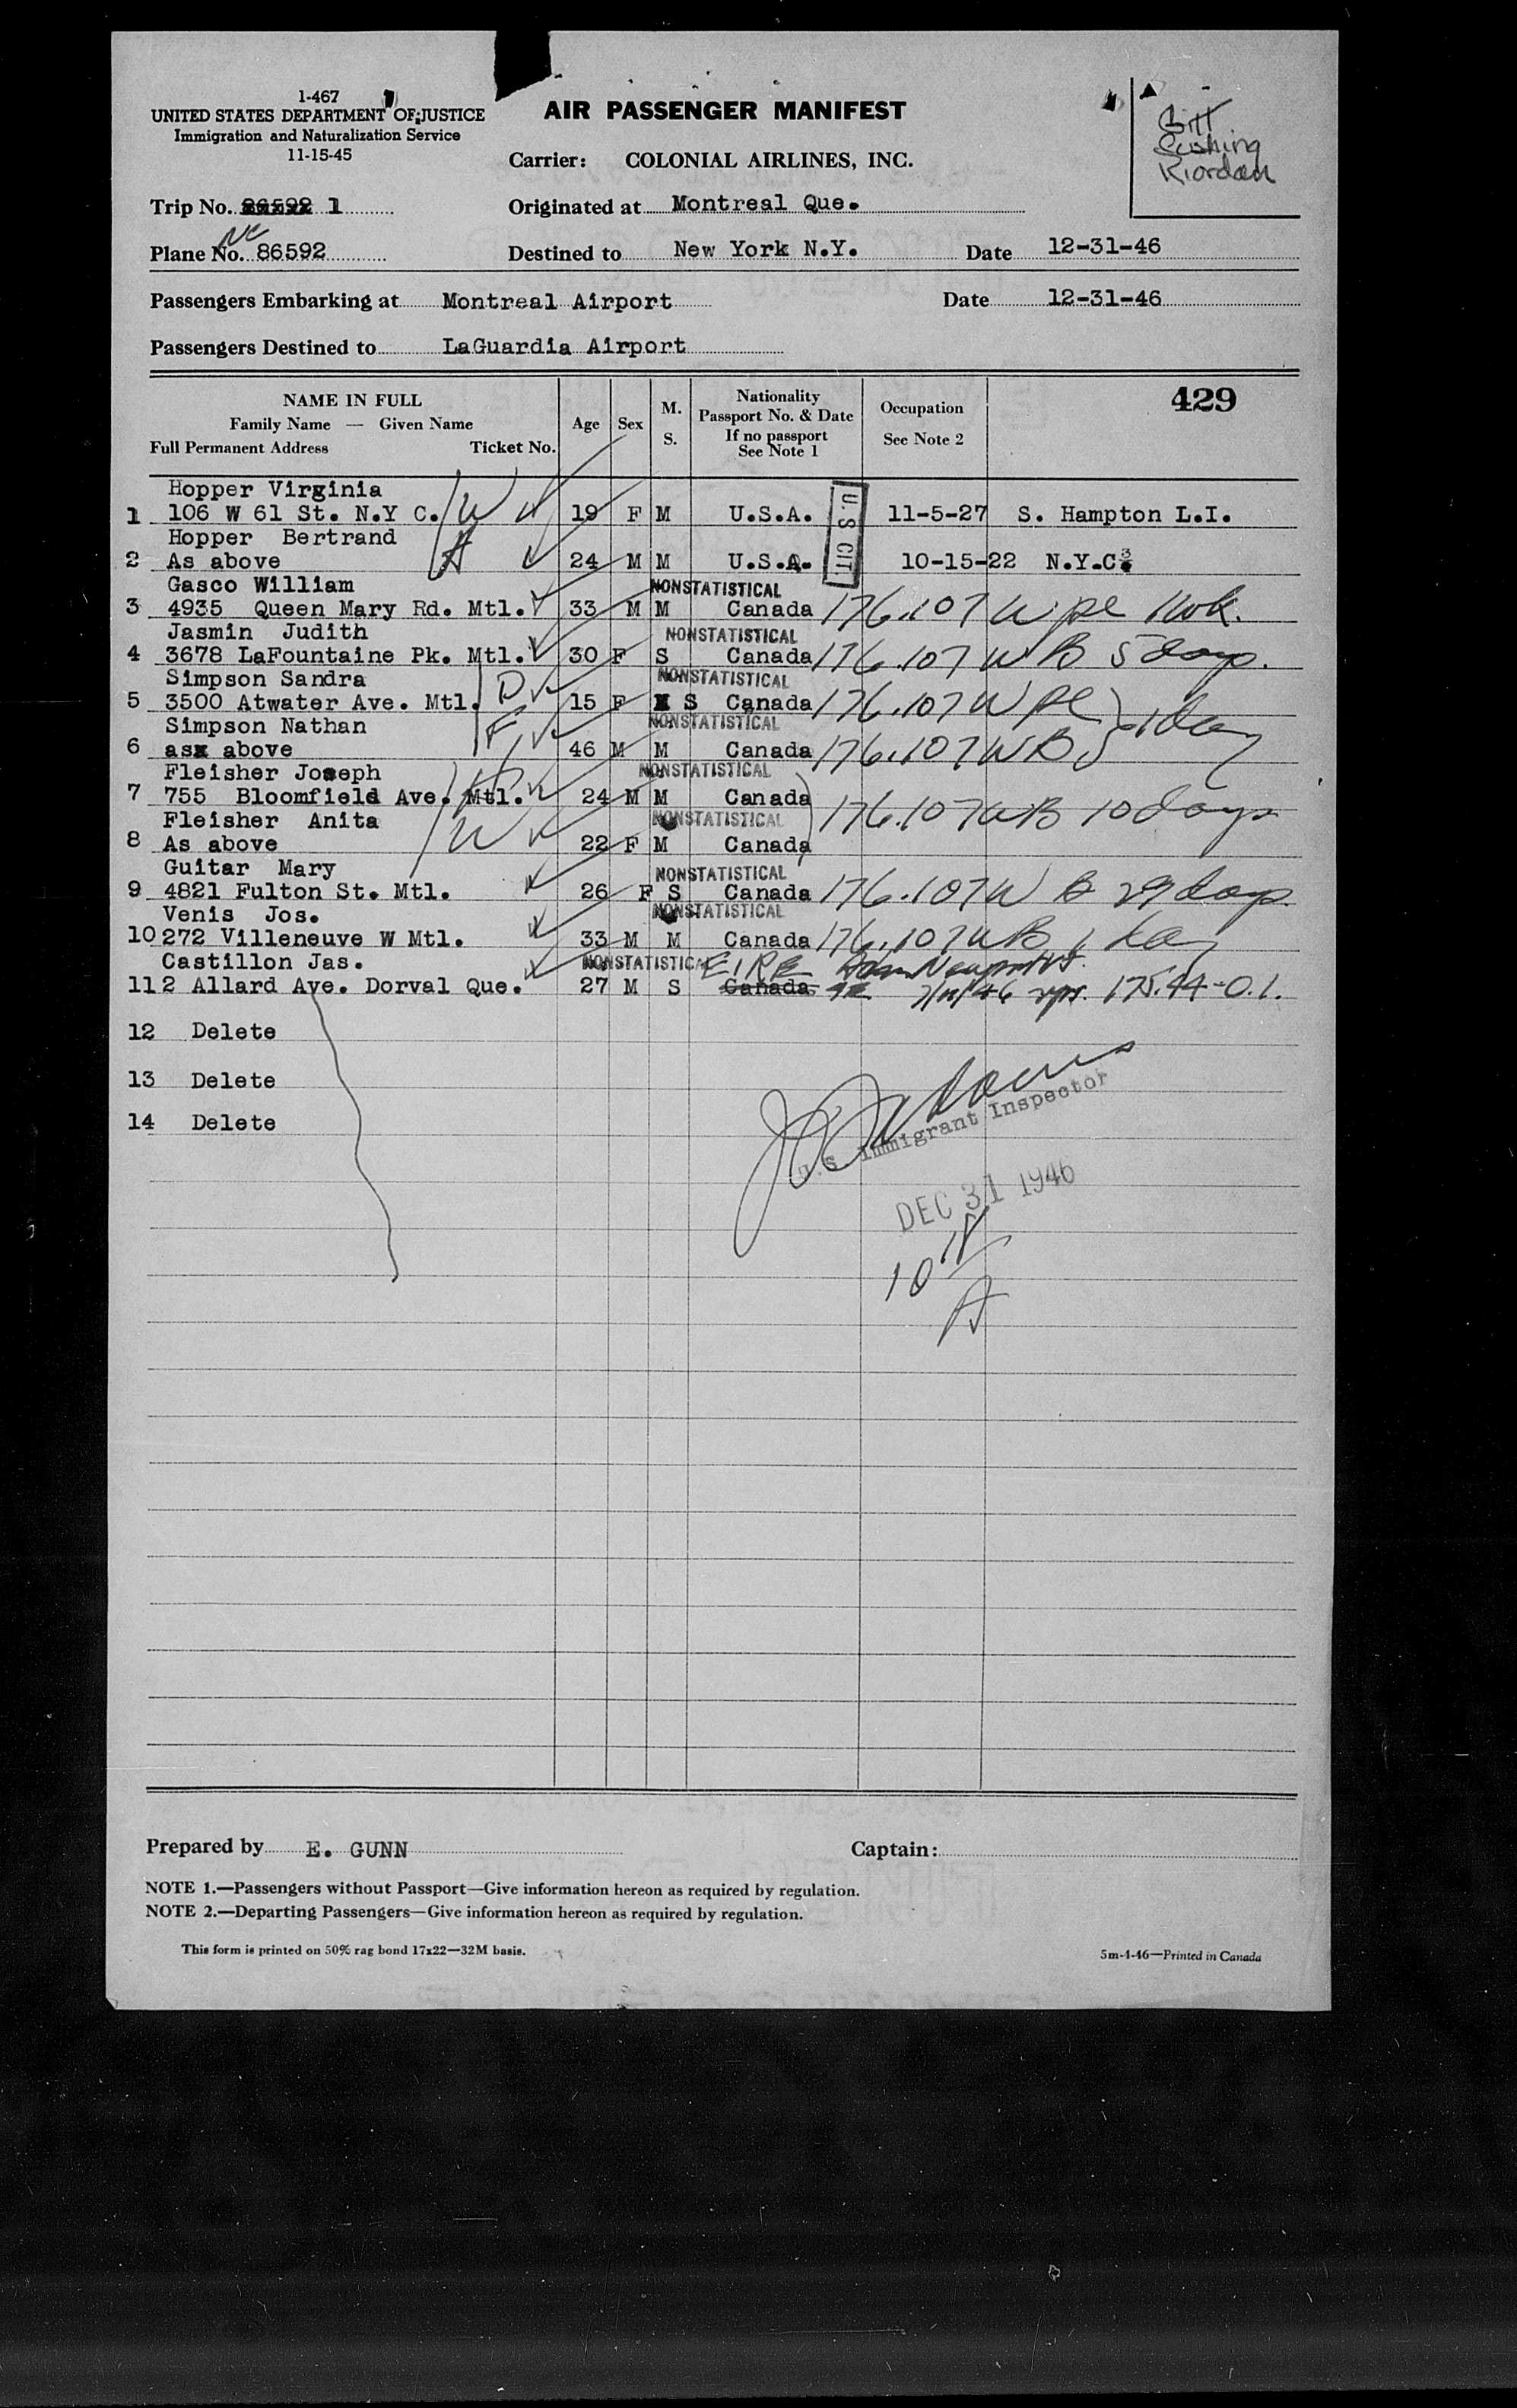 1-467
UNITED STATES DEPARTMENT OF JUSTICE
Immigration and Naturalization Service
11-15-45
AIR PASSENGER MANIFEST
Carrier: COLONIAL AIRLINES, INC.
Cushing
Riordan
Trip No. 86592 1
Originated at Montreal Que.
NC
Plane No. 86592
Destined to New York N.Y. Date 12-31-46
Passengers Embarking at Montreal Airport Date 12-31-46
Passengers Destined to LaGuardia Airport
NAME IN FULL
Family Name — Given Name
Full Permanent Address Ticket No.
Age
Sex
M.
S.
Nationality
Passport No. & Date
If no passport
See Note 1
Occupation
See Note 2
429
Hopper Virginia
1 106 W 61 St. N.Y C. W 19 F M U.S.A. 11-5-27 S. Hampton L.I.
U.S CIT.
Hopper Bertrand
2 As above H 24 M M U.S.A. 10-15-22 N.Y.C.
Gasco William NONSTATISTICAL
3 4935 Queen Mary Rd. Mtl. 33 M M Canada 176.107 W Pl 1 wk.
Jasmin Judith NONSTATISTICAL
4 3678 LaFountaine Pk. Mtl. 30 F S Canada 176.107 W B 5 days.
Simpson Sandra D NONSTATISTICAL
5 3500 Atwater Ave. Mtl. 15 F S Canada 176.107 W Pl
Simpson Nathan F NONSTATISTICAL
6 asx above 46 M M Canada 176.107 W B 1 day
Fleisher Joseph H NONSTATISTICAL
7 755 Bloomfield Ave. Mtl. 24 M M Canada 176.107 W B 10 days
Fleisher Anita W NONSTATISTICAL
8 As above 22 F M Canada
Guitar Mary NONSTATISTICAL
9 4821 Fulton St. Mtl. 26 F S Canada 176.107 W B 29 days.
Venis Jos. NONSTATISTICAL
10 272 Villeneuve W Mtl. 33 M M Canada 176.107 W B 1 day
Castillon Jas. NONSTATISTICAL EIRE Adm Newport Vt.
11 2 Allard Ave. Dorval Que. 27 M S Canada 175.44-O.1.
12 Delete
13 Delete
14 Delete
U.S. Immigrant Inspector
DEC 31 1946
10
A
Prepared by E. GUNN
Captain:
NOTE 1.—Passengers without Passport—Give information hereon as required by regulation.
NOTE 2.—Departing Passengers—Give information hereon as required by regulation.
This form is printed on 50% rag bond 17x22—32M basis.
5m-4-46—Printed in Canada